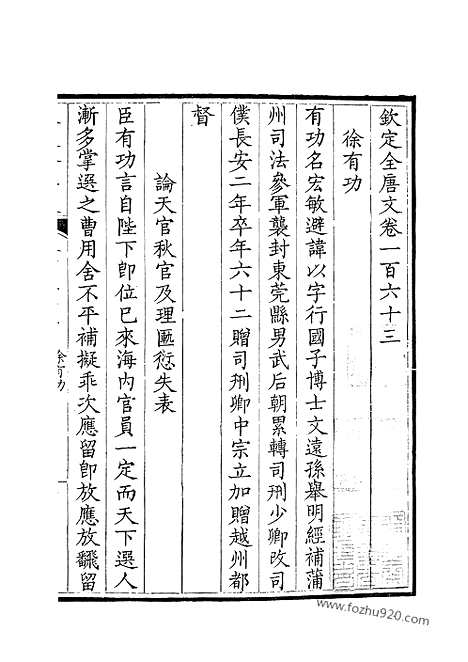 欽定全唐文卷一百六十三
徐有功
有功名宏敏避諱以字行國子博士文遠孫舉明經補蒲
州司法參軍襲封東莞縣男武后朝累轉司刑少卿改司
僕長安二年卒年六十二贈司刑卿中宗立加贈越州都
督
論天官秋官及理匭愆失表
臣有功言自陛下卽位已來海內官員一定而天下選人
漸多掌選之曹用舍不平補擬乖次應留卽放應放飜留
徐有功
www.fozhu920.com